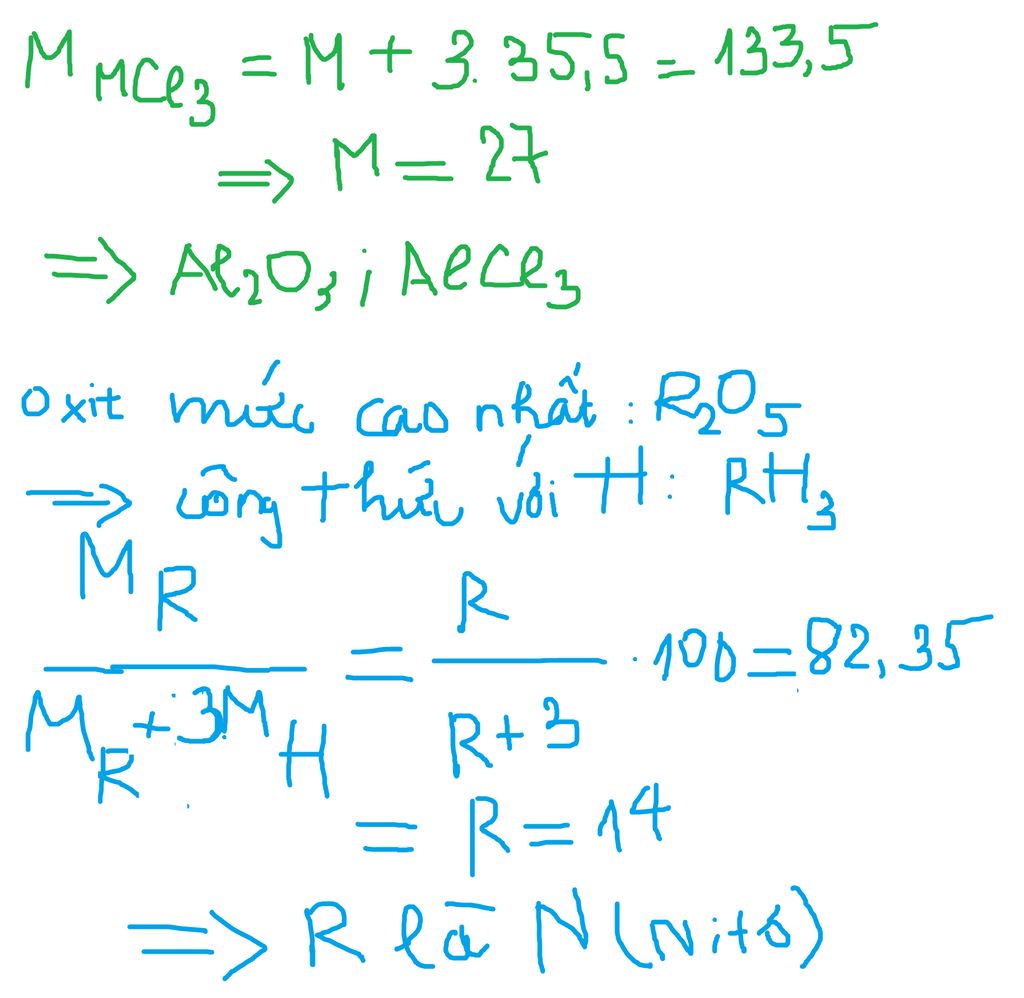 M_MCl₃ = M + 3.35,5 = 133,5
⇒ M = 27
⇒ Al₂O₃ ; AlCl₃
Oxit mức cao nhất : R₂O₅
⇒ công thức với H : RH₃
M_R / (M_R + 3M_H) = R / (R + 3) . 100 = 82,35
= R = 14
⇒ R là N (Nitơ)